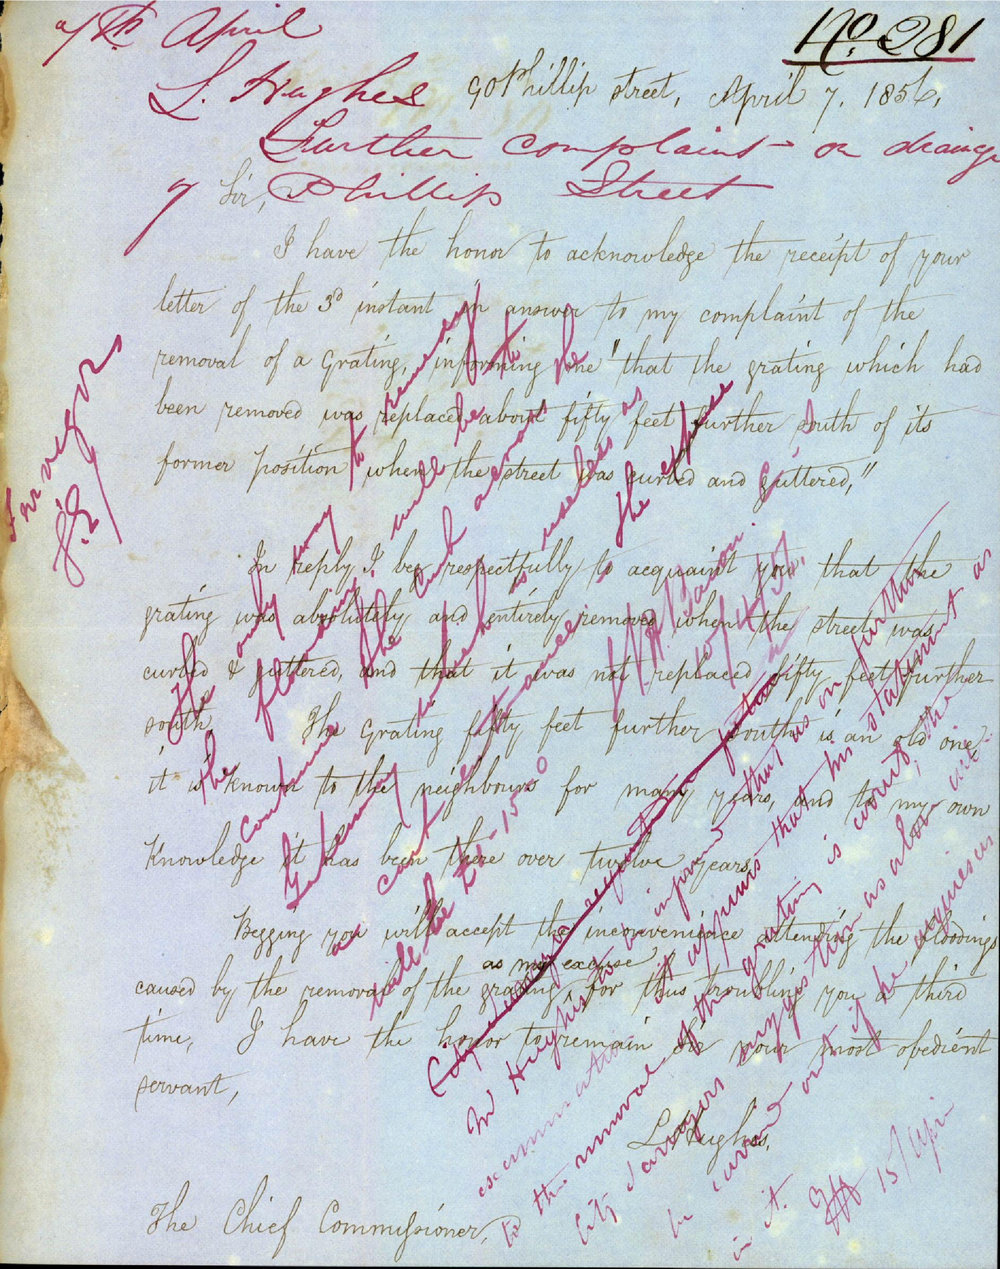 7th April
No. 281
L. Hughes
90 Phillip Street, April 7. 1856,
Further complaint - on drainage
of Phillip Street
Sir,
I have the honor to acknowledge the receipt of your
letter of the 3d instant in answer to my complaint of the
removal of a Grating, informing me "that the grating which had
been removed was replaced about fifty feet further South of its
former position where the street was curbed and Guttered,"
In reply I beg respectfully to acquaint you, that the
grating was absolutely and entirely removed when the street was
curbed & guttered, and that it was not replaced fifty feet further
south. The Grating fifty feet further South is an old one
it is known to the neighbours for many years, and to my own
Knowledge it has been there over twelve years
Begging you will accept the inconvenience attending the floodings
as my excuse
caused by the removal of the grating, for thus troubling you a third
time, I have the honor to remain Sir your most obedient
servant,
L. Hughes,
The Chief Commissioner,
Surveyor
The only way to remedy
the flooding will be to
continue the curb across the
Gateway which is useless as
an cart
the expense
will be £5-15-0
10/4/56
Mr Hughes to be informed that as on further
examination it appears that his statement as
to the removal of the grating is correct, the
City Surveyors suggestion as above will
be carried out if he acquiesces
in it.
15/Apr